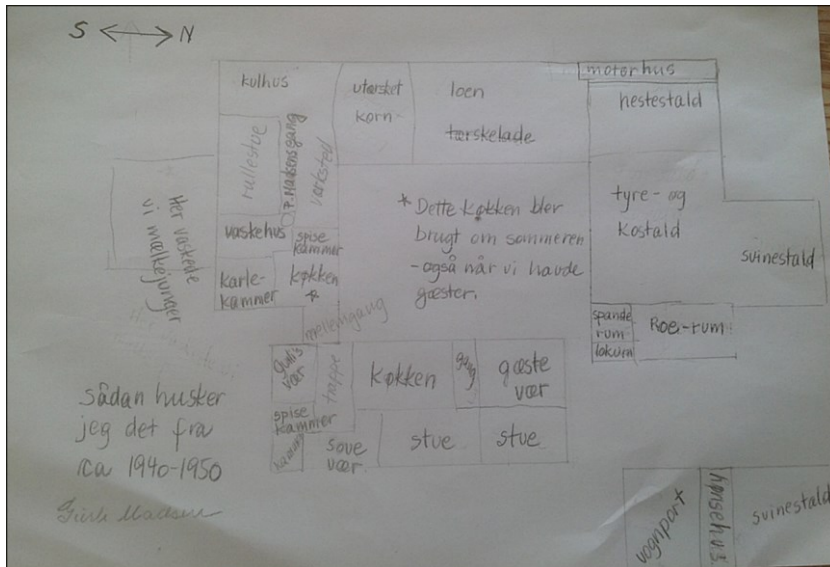 S N
motorhus
kulhus
utærsket
korn
loen
tærskelade
hestestald
rullestue
P. Madsensgang
værksted
Her vaskede
vi mælkejunger
vaskehus
spise
kammer
karle-
kammer
køkken
*
* Dette køkken blev
brugt om sommeren
- også når vi havde
gæster.
tyre- og
kostald
svinestald
spande
rum
lokum
Roe-rum
mellemgang
vær
trappe
køkken
gang
gæste
vær
spise
kammer
sove
vær
stue
stue
sådan husker
jeg det fra
ca 1940-1950
Madsen
vognport
hønsehus
svinestald